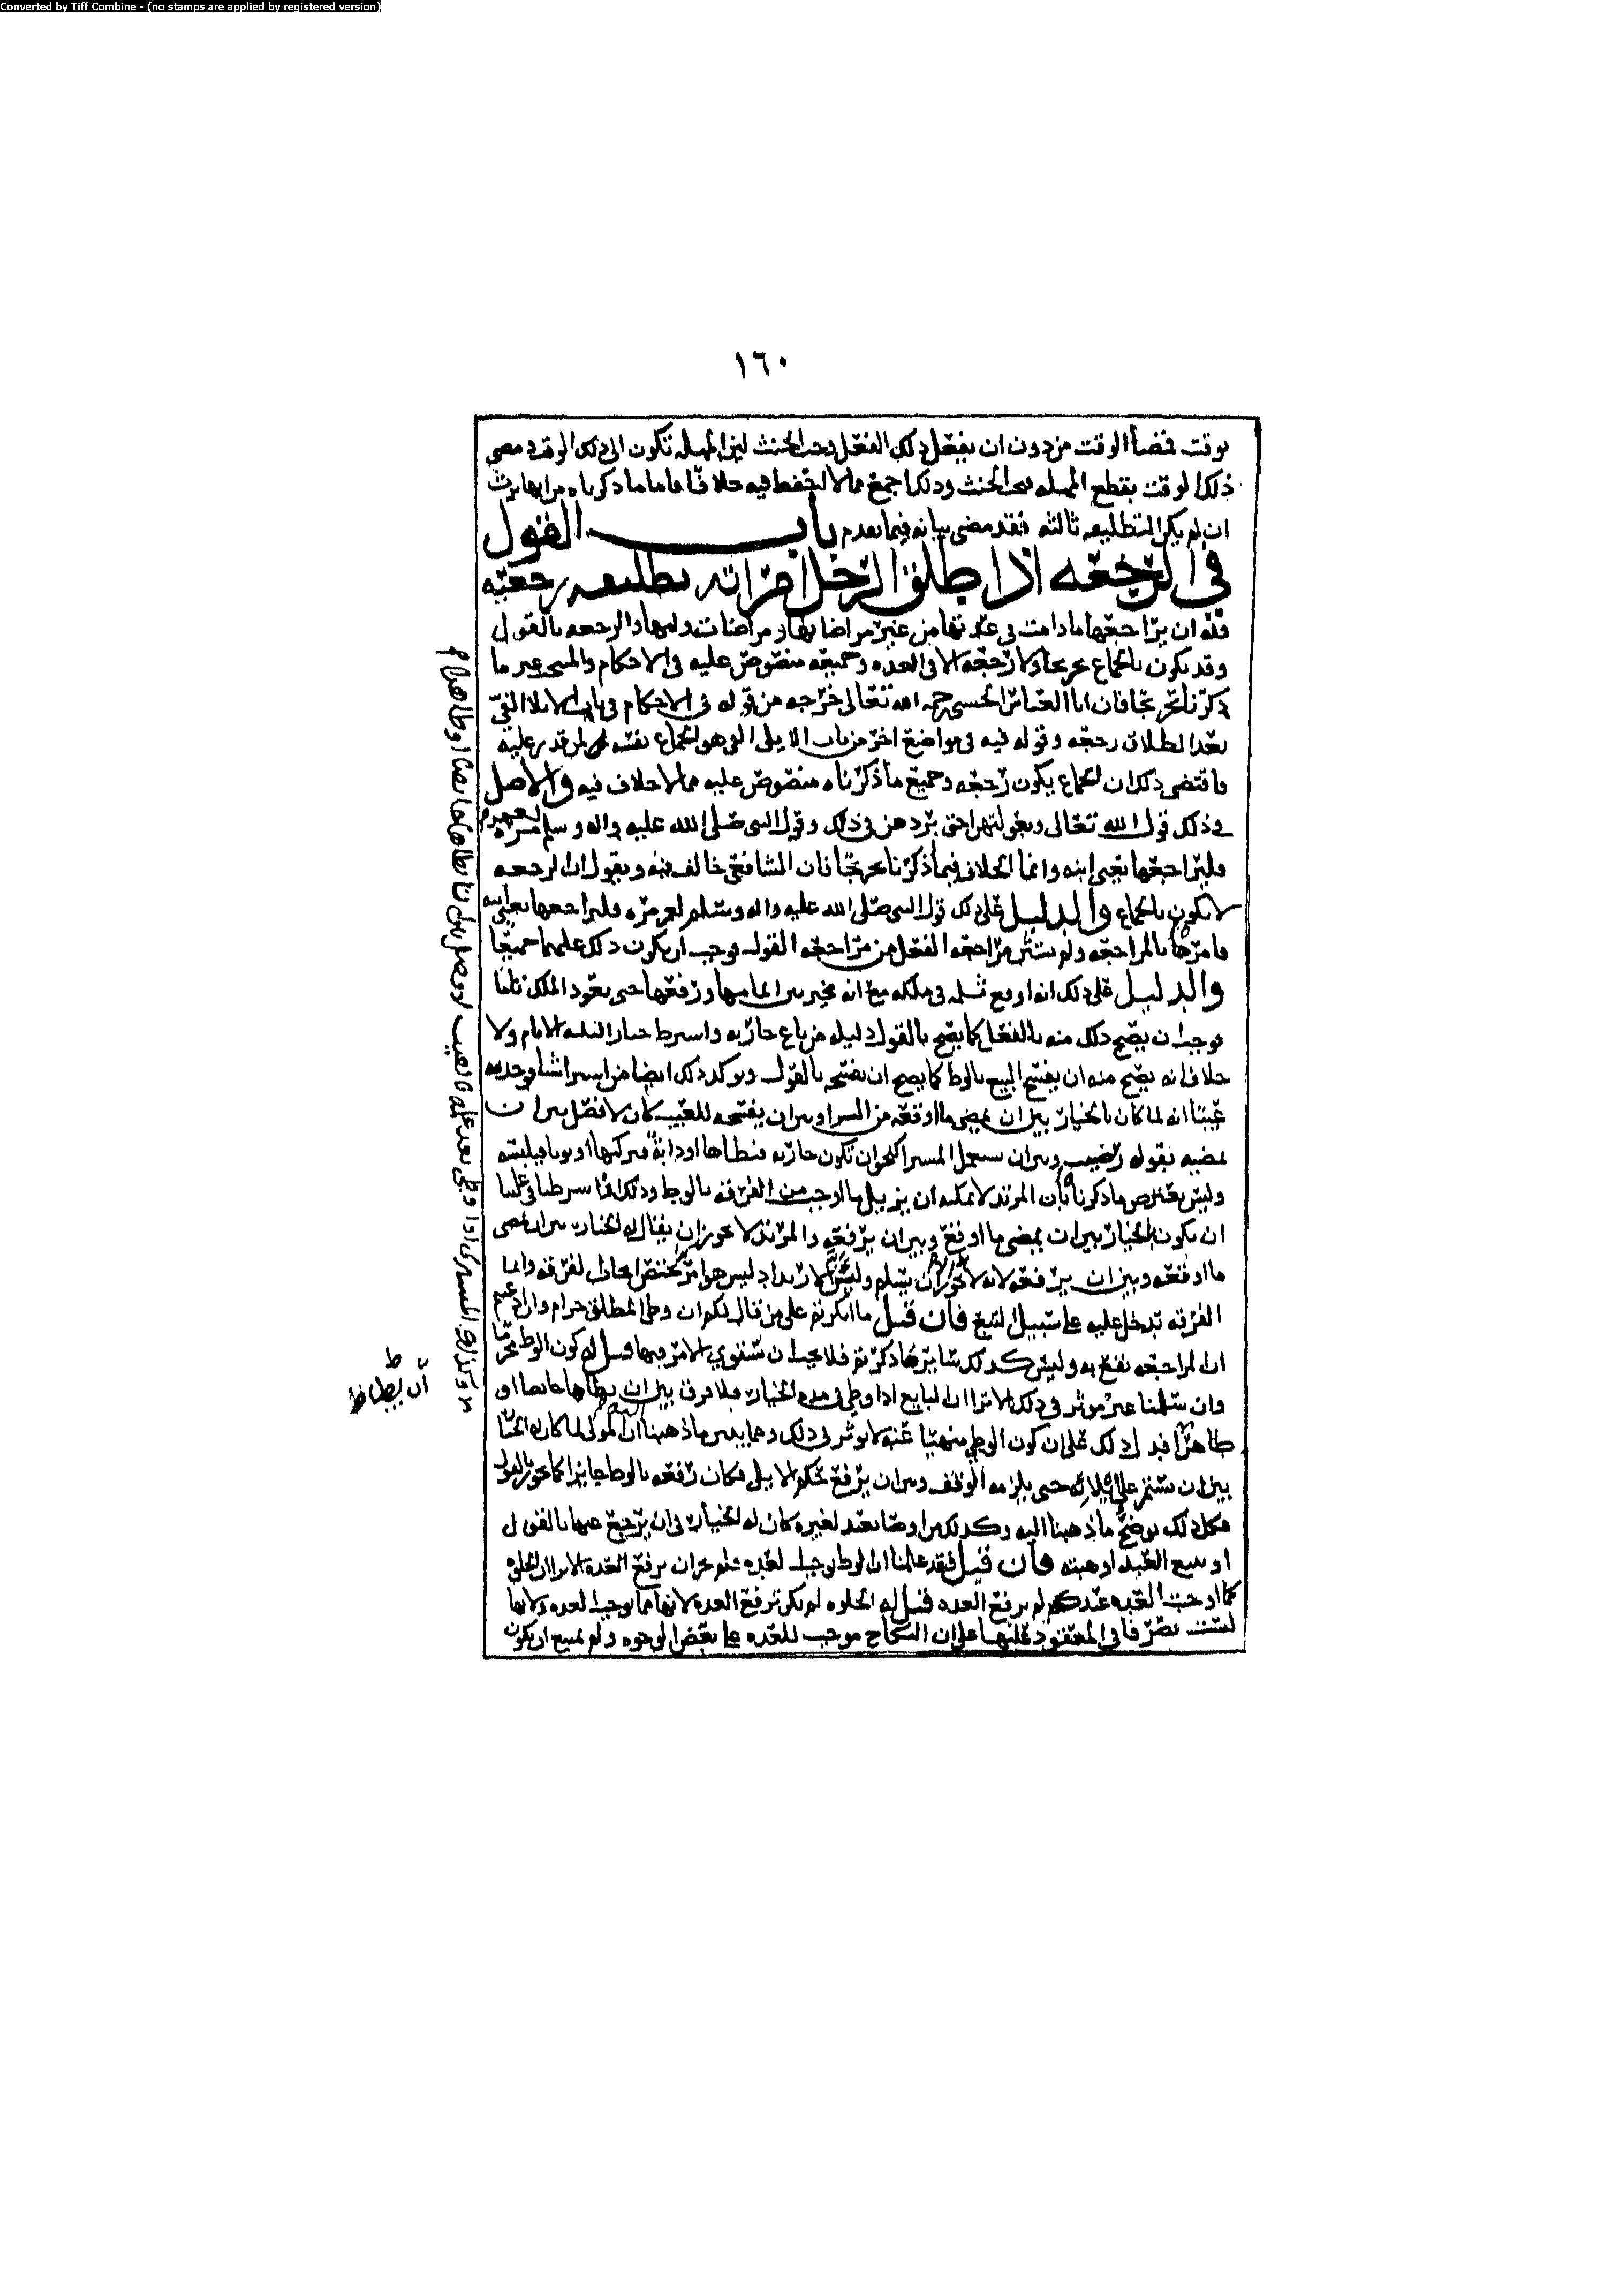 Converted by Tiff Combine - (no stamps are applied by registered version)
١٦٠
بوقت فمضا الوقت من دون ان يفعل ذلك الفعل وجب الحنث لان المهله تكون الى ذلك الوقت ومضي
ذلك الوقت يقطع المهله فيجب الحنث وذلك اجمع مما لا احفظ فيه خلافا فاما ما ذكرناه من انها ترث
ان لم يكن التطليقه ثالثه فقد مضى بيانه فيما تقدم باب القول
في الرجعه اذا طلق الرجل امراته تطليقه رجعيه
فله ان يراجعها ما دامت في عدتها من غير مراضاتها ومراضات وليها والرجعه بالقول
وقد تكون بالجماع تخريجا ولا رجعه الا في العده وجميعه منصوص عليه في الاحكام والمنتخب غير ما
ذكرنا تخريجا فان ابا العباس الحسني رحمه الله تعالى خرجه من قوله في الاحكام في باب الايلا الفي
بعد الطلاق رجعه وقوله فيه في مواضع اخر من باب الايلى الفي هو الجماع نفسه لمن قدر عليه
فاقتضى ذلك ان الجماع يكون رجعه وجميع ما ذكرناه منصوص عليه مما لا خلاف فيه والاصل
في ذلك قول الله تعالى وبعولتهن احق بردهن في ذلك وقول النبي صلى الله عليه واله وسلم لعمر مره
فليراجعها يعني ابنه وانما الخلاف فيما ذكرنا تخريجا فان الشافعي خالف فيه ويقول ان الرجعه
لا تكون بالجماع والدليل على ذلك قول النبي صلى الله عليه واله وسلم لعمر مره فليراجعها يعني ابنه
فامره بالمراجعه ولم يستثن مراجعه الفعل من مراجعه القول فوجب ان يكون ذلك عليهما جميعا
والدليل على ذلك انه اوقع ثلمه في ملكه مع انه مخير بين اتمامها ورفعها حتى يعود الملك تاما
فوجب ان يصح ذلك منه بالفعل كما يصح بالقول دليله من باع جاريه واشترط خيار الثلثه الايام ولا
خلاف انه يصح منه ان يفسخ البيع بالوطا كما يصح ان يفسخه بالقول ويوكد ذلك ايضا من اشترا شيا فوجد به
عيبا انه لما كان بالخيار بين ان يمضي ما اوقعه من الشرا وبين ان يفسخه للعيب كان لا فصل بين ان
يمضيه بقوله رضيت وبين ان يستعمل المشترا كنحو ان تكون جاريه فيطاها او دابة فيركبها او ثوبا فيلبسه
وليس يعترض ما ذكرنا بان المرتد لا يمكنه ان يزيل ما اوجب من الفرقه بالوطا وذلك انا شرطنا في علتنا
ان يكون بالخيار بين ان يمضي ما اوقع وبين ان يرفعه والمرتد لا يجوز ان يقال له الخيار بين ان يمضي
ما اوقعه وبين ان يرفعه لانه لا يجوز الا ان يسلم وليس الارتداد ليس هو امر يختص ايجاب الفرقه وانما
الفرقه تدخل عليه على سبيل التبع فان قيل ما انكرتم على من قال لكم ان وطي المطلق حرام وان زعمتم
ان المراجعه تقع به وليس كذلك سائر ما ذكرتم فلا يجب ان يستوي الامر فيها قيل له كون الوطي محرما
وان سلمنا غير موثر في ذلك الا ترا ان البايع اذا وطي في مده الخيار فلا فرق بين ان يطاها حايضا او
طاهرا فدل ذلك على ان كون الوطي منهيا عنه لا يوثر في ذلك ومما يبين ما ذهبنا ان المولى لما كان له الخيار
بين ان يستمر على ايلائه حتى يلزمه الوقف وبين ان يرفع حكم الايلى فكان رفعه بالوطا جايزا كما يجوز بالقول
فكل ذلك يوضح ما ذهبنا اليه وكذلك من اوصا بعبد لغيره كان له الخيار في ان يرجع عنها بالقول
او ببيع العبد او هبته فان قيل فقد علمنا ان الوطا يوجب العده فلم يجز ان يرفع العده الا ترا ان الخلوه
كما اوجبت العده عندكم لم يرفع العده قيل له الخلوه لم يكن ترفع العده لانها مما يوجب العده ولانها
ليست تصرفا في المعقود عليها على ان النكاح موجب للعده على بعض الوجوه ولم يمتنع ان يكون
ان يطا ظ